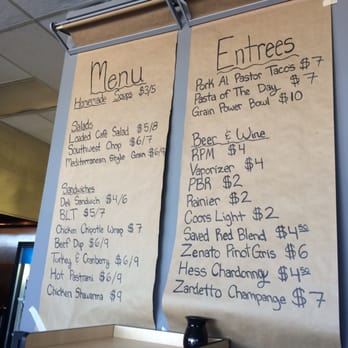 Menu
Homemade Soups $3/5
Salads
Loaded Cafe Salad $5/8
Southwest Chop $6/7
Mediterranean Style Grain $6/9
Sandwiches
Deli Sandwich $4/6
BLT $5/7
Chicken Chipotle Wrap $7
Beef Dip $6/9
Turkey & Cranberry $6/9
Hot Pastrami $6/9
Chicken Shawarma $9
Entrees
Pork Al Pastor Tacos $7
Pasta of The Day $7
Grain Power Bowl $10
Beer & Wine
RPM $4
Vaporizer $4
PBR $2
Rainier $2
Coors Light $2
Saved Red Blend $4.50
Zenato Pinot Gris $6
Hess Chardonnay $4.50
Zardetto Champange $7